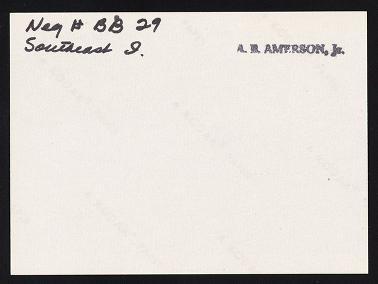 Neg # BB 29
Southeast I.
A. B. AMERSON, Jr.